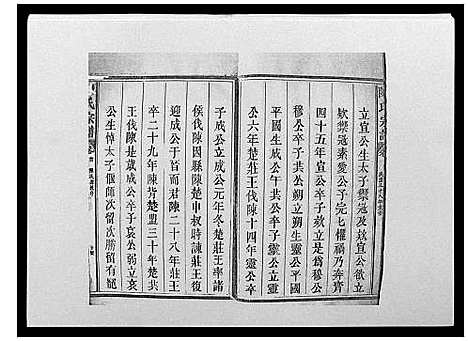 陳氏宗譜
立宣公生太子禦寇及欵宣公欲立
欵禦寇素愛公子完七懼禍乃奔齊
四十五年宣公卒子欵立是爲穆公
穆公卒子共公朔立朔生靈公
平國生成公午共公卒子靈公立靈
公六年楚莊王伐陳十四年靈公卒
子成公立成公元年冬楚莊王率諸
侯伐陳因縣陳楚申叔時諫莊王復
迎成公于晋而君陳二十八年莊王
卒二十九年陳背楚盟三十年楚共
王伐陳是歲成公卒子哀公弱立哀
公生悼太子偃師次留次勝留有寵
氏宗譜